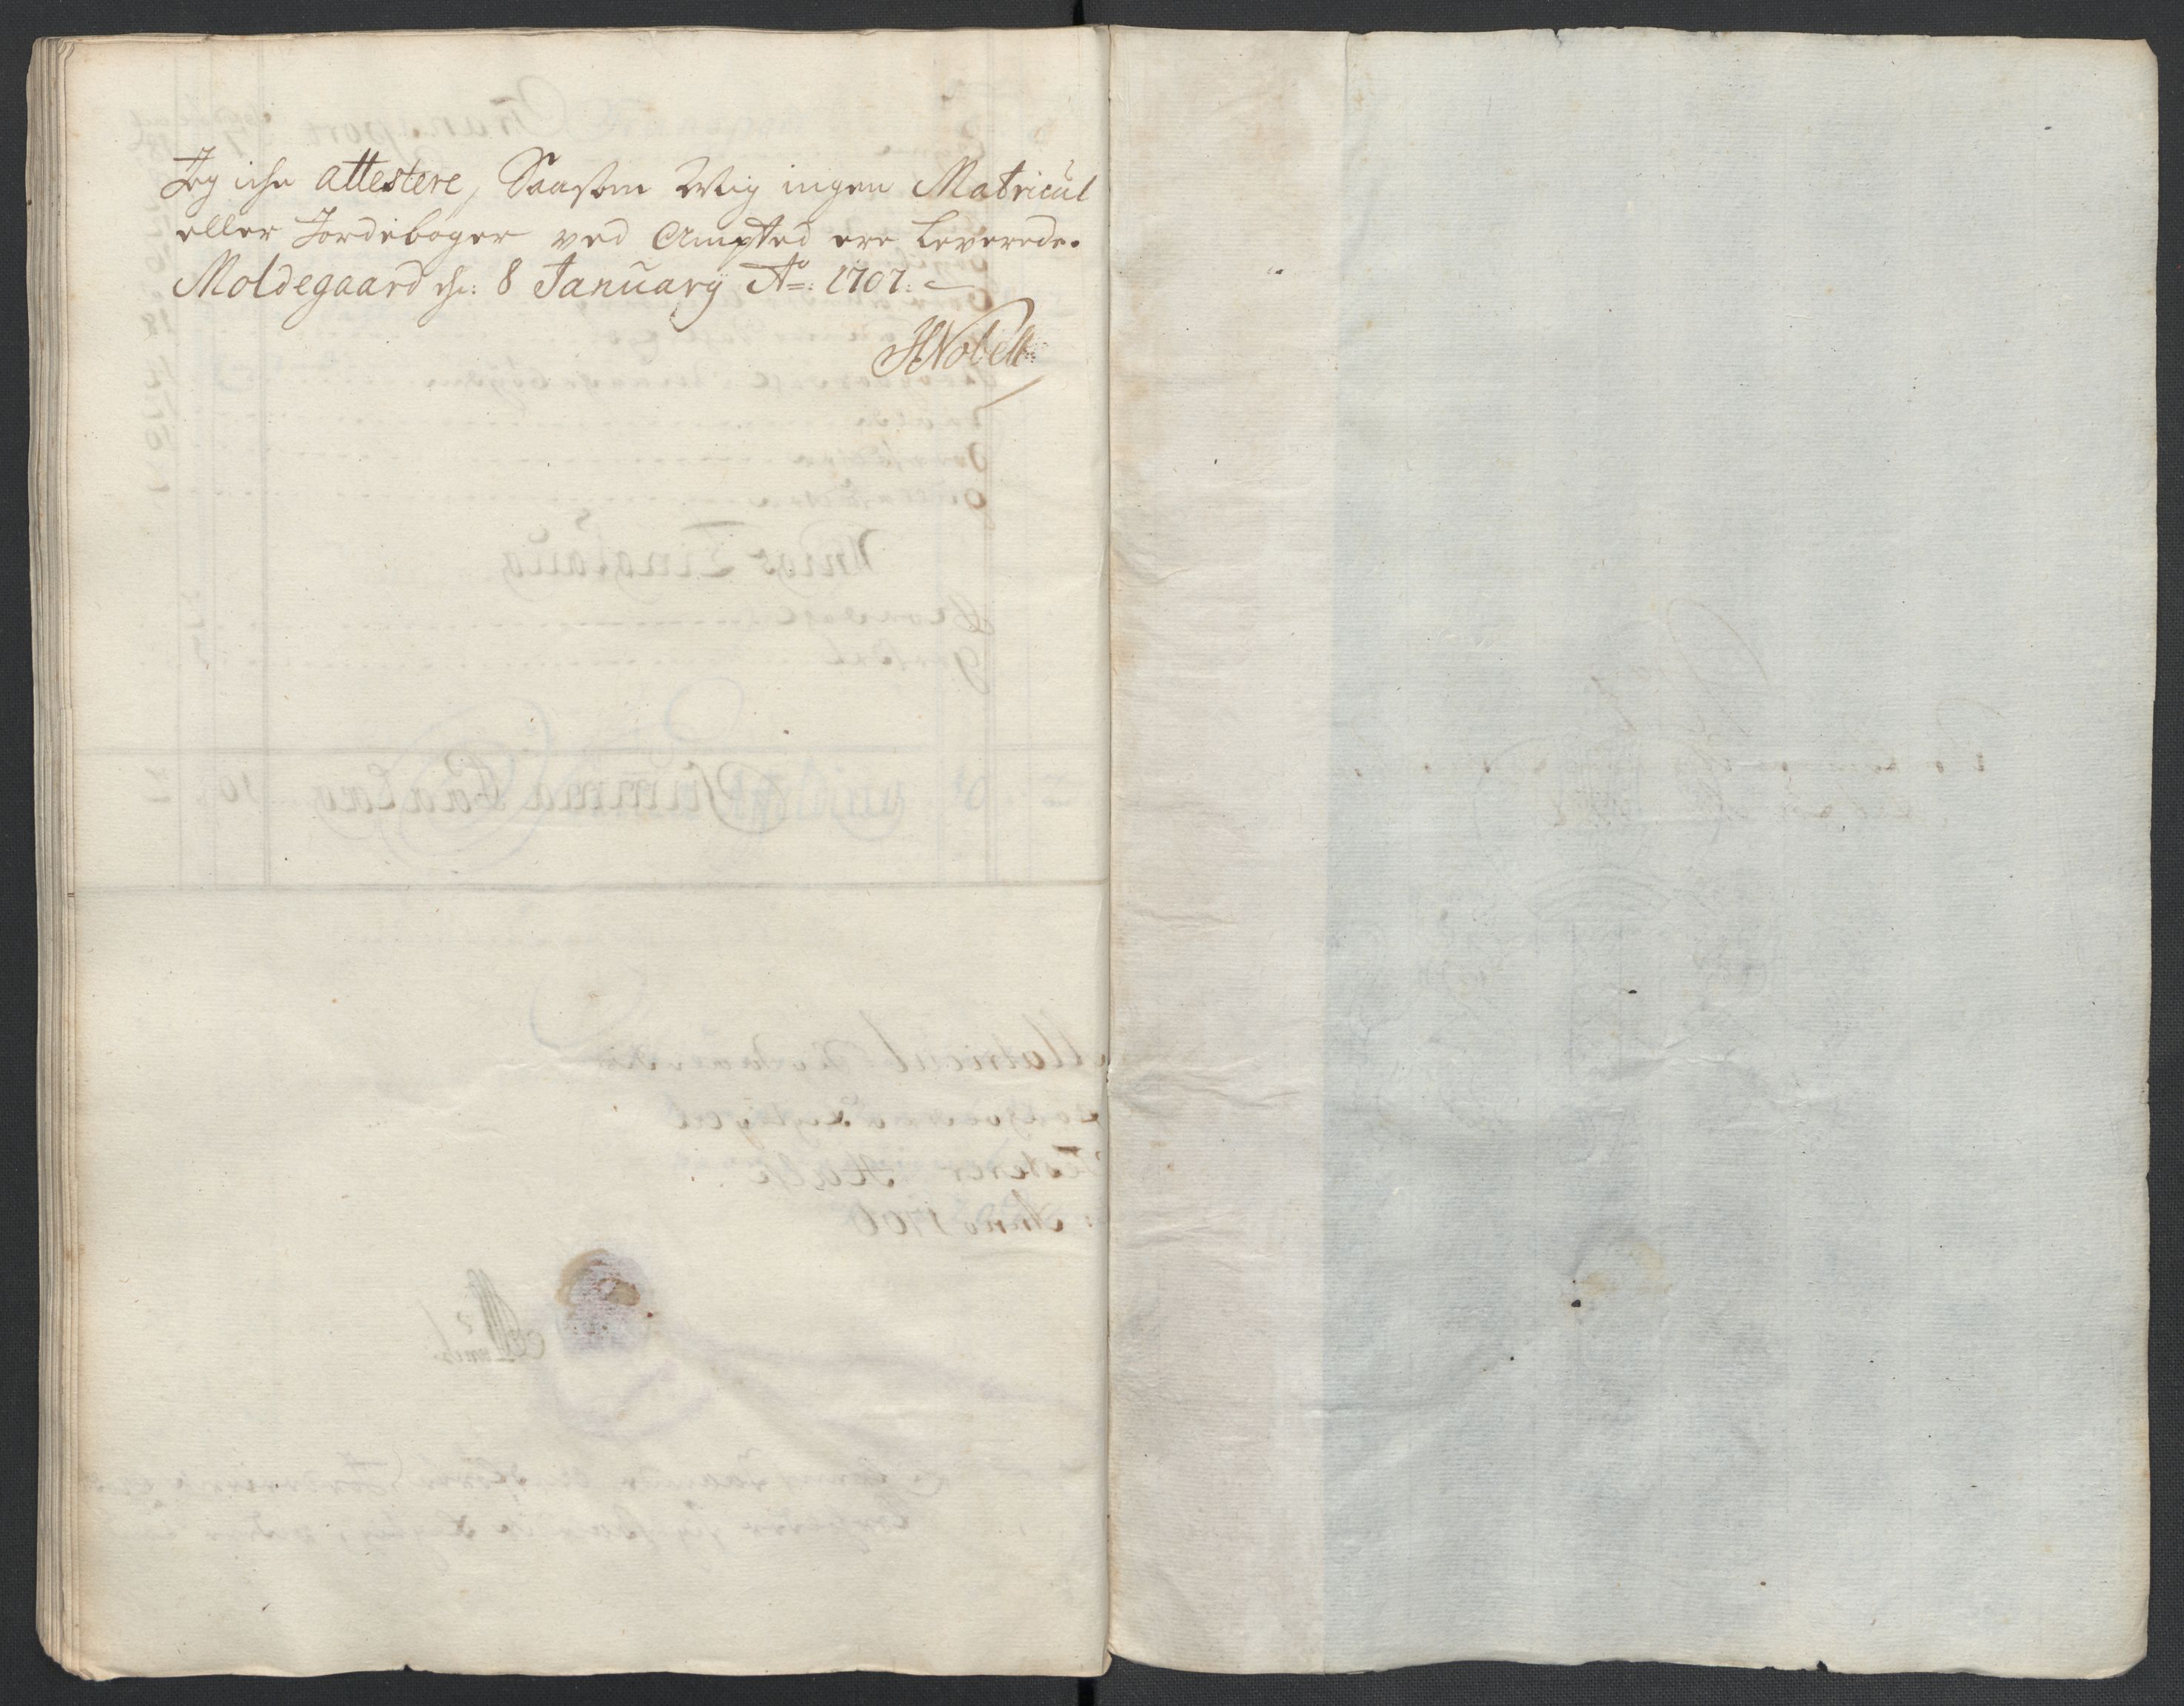 Jeg iche attestere, Saasom Mig ingen Matricul
eller Jordebøger ved Ampted ere Leverede.
Moldegaard d: 8 January Aō: 1707.
HNobell